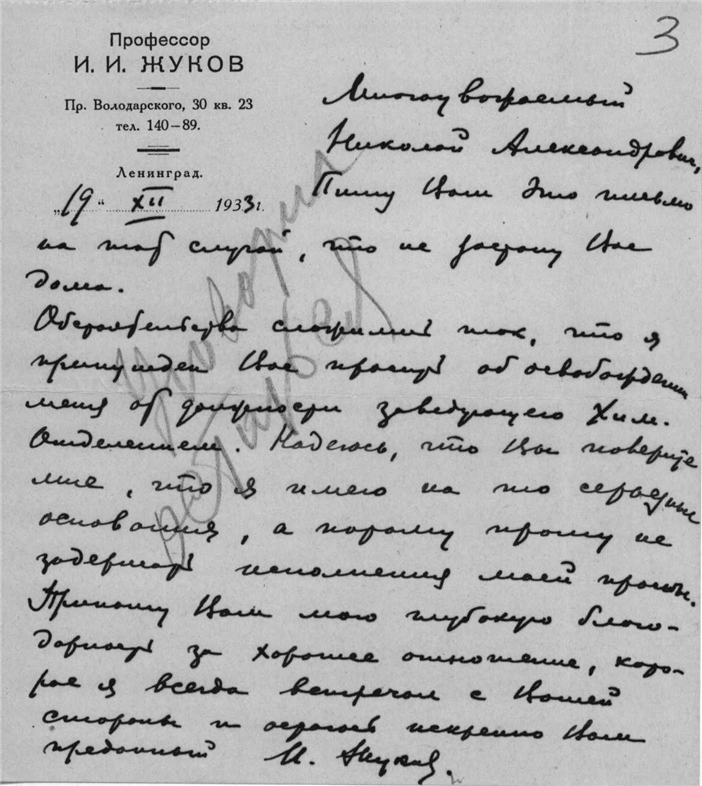 3
Профессор
И. И. ЖУКОВ
Пр. Володарского, 30 кв. 23
тел. 140–89.
Ленинград.
„19“ XII 1933 г.
Многоуважаемый
Николай Александрович,
Пишу Вам это письмо
на тот случай, что не застану Вас
дома.
Обстоятельства сложились так, что я
принужден Вас просить об освобождении
меня от должности заведующего Хим.
Отделением. Надеюсь, что Вы поверите
мне, что я имею на то серьезные
основания, а потому прошу не
задержать исполнения моей просьбы.
Приношу Вам мою глубокую благо-
дарность за хорошее отношение, кото-
рое я всегда встречал с Вашей
стороны и остаюсь искренно Вам
преданный И. Жуков.